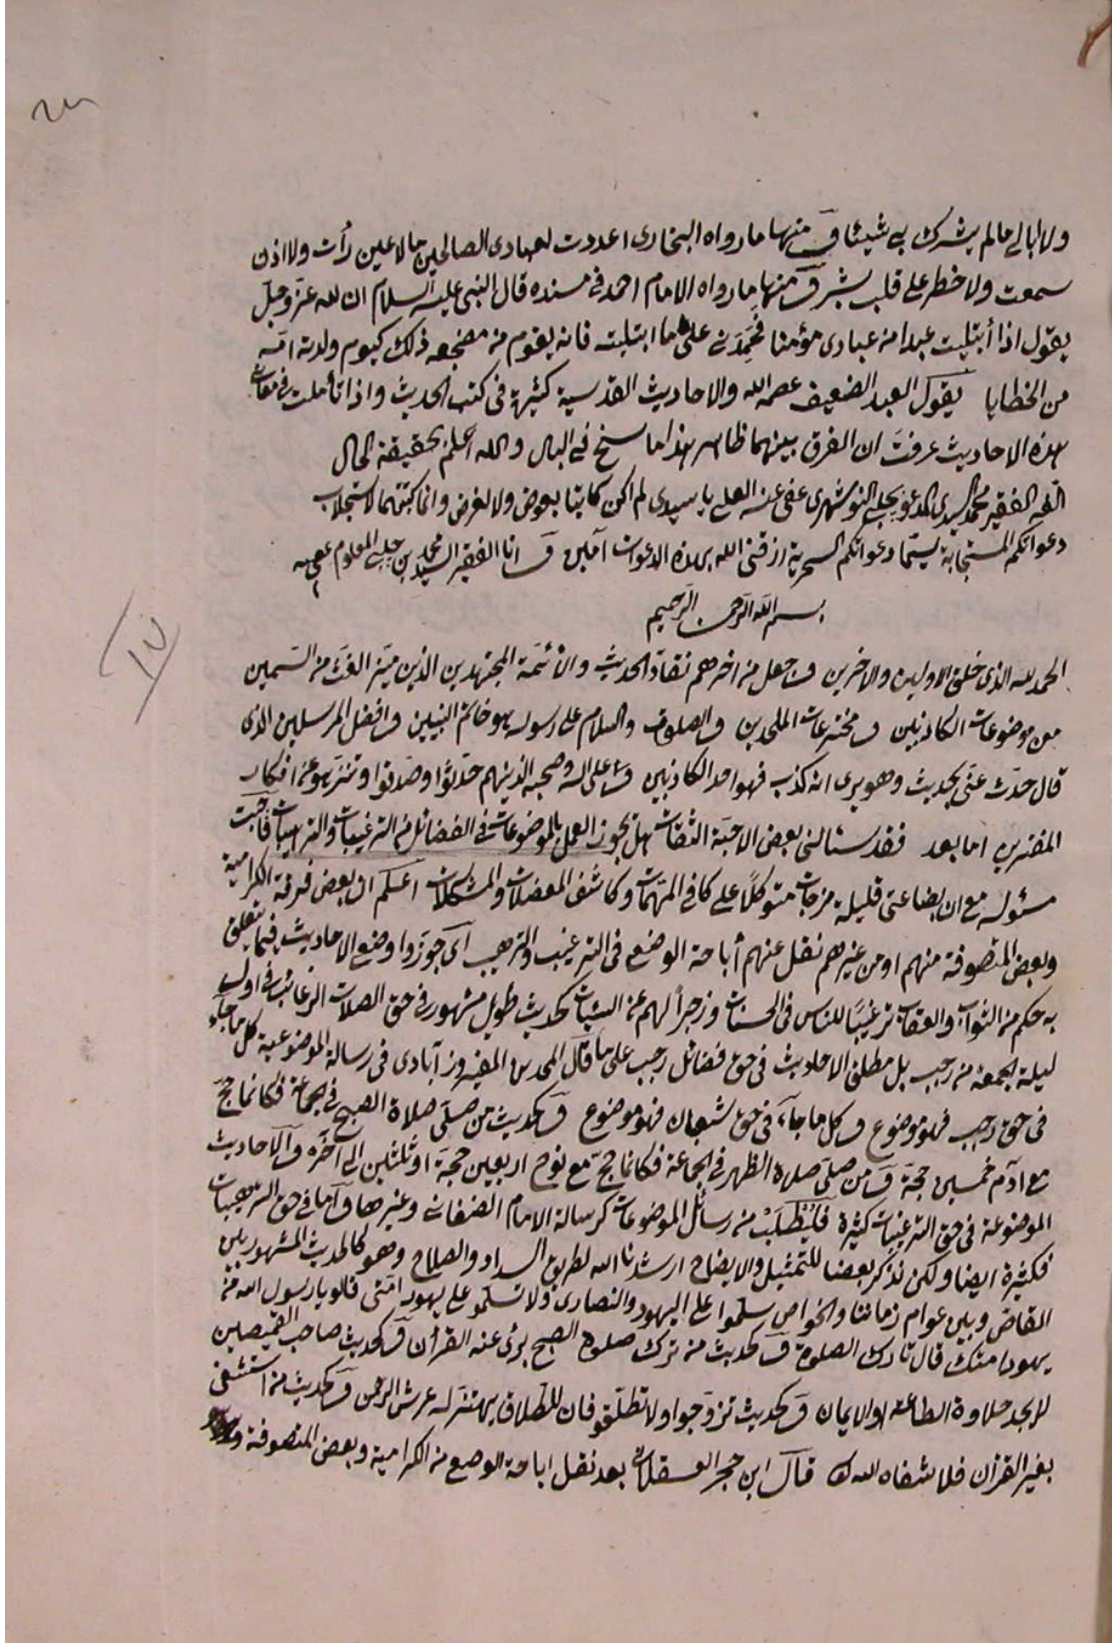 ولا ابالي مالم يشرك بي شيئا و منها ما رواه البخاري اعددت لعبادي الصالحين ما لا عين رأت ولا اذن
سمعت ولا خطر على قلب بشر و منها ما رواه الامام احمد في مسنده قال النبي عليه السلام ان لله عز وجل
يقول اذا أبتليت عبدا من عبادي مؤمنا فحمدني على ما ابتليته فانه يقوم من مضجعه ذلك كيوم ولدته امه
من الخطايا يقول العبد الضعيف عصمه الله والاحاديث القدسية كثيرة في كتب الحديث واذا تأملت في معاني
هذه الاحاديث عرفت ان الفرق بينهما ظاهر هذا ما سنح في البال والله اعلم بحقيقة الحال
الفه الفقير محمد السيدي المدعو بچلبي النوشهري عفى عنه العلي يا سيدي لم اكن كاتبا بعوض ولا لغرض وانما كتبتهما لاستجلاب
دعواتكم المستجابة لاسيما دعواتكم السحرية ارزقني الله بهذه الدعوات آمين و انا الفقير السيد محمد بن چلبي المعلوم عفي عنه
بسم الله الرحمن الرحيم
الحمد لله الذي خلق الاولين والاخرين و جعل من اخرهم نقاد الحديث والأئمة المجتهدين الذين ميز الغث من السمين
من موضوعات الكاذبين و مخترعات الملحدين و الصلوة والسلام على رسوله هو خاتم النبيين و افضل المرسلين الذي
قال حدث عني بحديث وهو يرى انه كذب فهو احد الكاذبين و على اله وصحبه الذينهم حدثوا وصدقوا وتنزهو عن افكار
المفترين اما بعد فقد سئالني بعض الاحبة الثقات هل يجوز العمل بالموضوعات في الفضائل من الترغيبات والترهيبات فاجبت
مسئوله مع ان بضاعتي قليلة مزجات متوكلا على كافي المهمات وكاشف المعضلات والمشكلات اعلم ان بعض فرقة الكرامية
وبعض المتصوفة منهم او من غيرهم نقل عنهم أباحة الوضع في الترغيب والترهيب اي جوزوا وضع الاحاديث فيما يتعلق
به حكم من الثواب والعقاب ترغيبا للناس في الحسنات وزجرا لهم عن السيئات كحديث طويل مشهور في حق الصلات الرغائب في اول
ليلة الجمعة من رجب بل مطلق الاحاديث في حق فضائل رجب على ما قال المجد الفيروزآبادي في رسالة الموضوعية كل ما جاء
في حق رجب فهو موضوع و كل ما جاء في حق شعبان فهو موضوع و كحديث من صلى صلاة الصبح في جماعة فكانما حج
مع ادم خمسين حجة و من صلى صلاة الظهر في الجماعة فكانما حج مع نوح اربعين حجة او ثلثين الى آخره و الاحاديث
الموضوعة في حق الترغيبات كثيرة فليطلب من رسائل الموضوعات كرسالة الامام الصغاني وغيرها و اما في حق الترهيبات
فكثيرة ايضا ولكن نذكر بعضا للتمثيل والايضاح ارشدنا الله لطريق السداد والصلاح وهو كالحديث المشهور بين
القاص وبين عوام زماننا والخواص سلموا على اليهود والنصارى ولا تسلمو على يهود امتي قالو يا رسول الله من
يهود امتك قال تارك الصلوة و كحديث من ترك صلوة الصبح برئ عنه القرأن و كحديث صاحب القميصين
لا يجد حلاوة الطاعة او الايمان و كحديث تزوجوا ولا تطلقو فان الطلاق يهتز له عرش الرحمن و كحديث من استشفى
بغير القرأن فلا شفاه الله قال ابن حجر العسقلاني بعد نقل اباحة الوضع من الكرامية وبعض المتصوفة